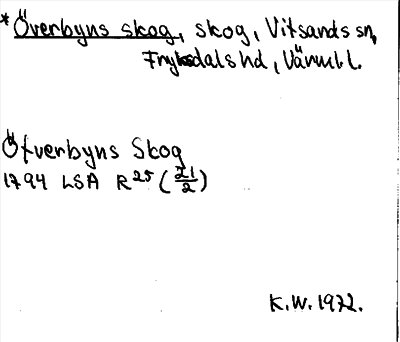 * Överbyns skog, skog, Vitsands sn,
Fryksdals hd, Värml. l.
Öfverbyns Skog
1794 LSA R25 (21/2)
K.W. 1972.